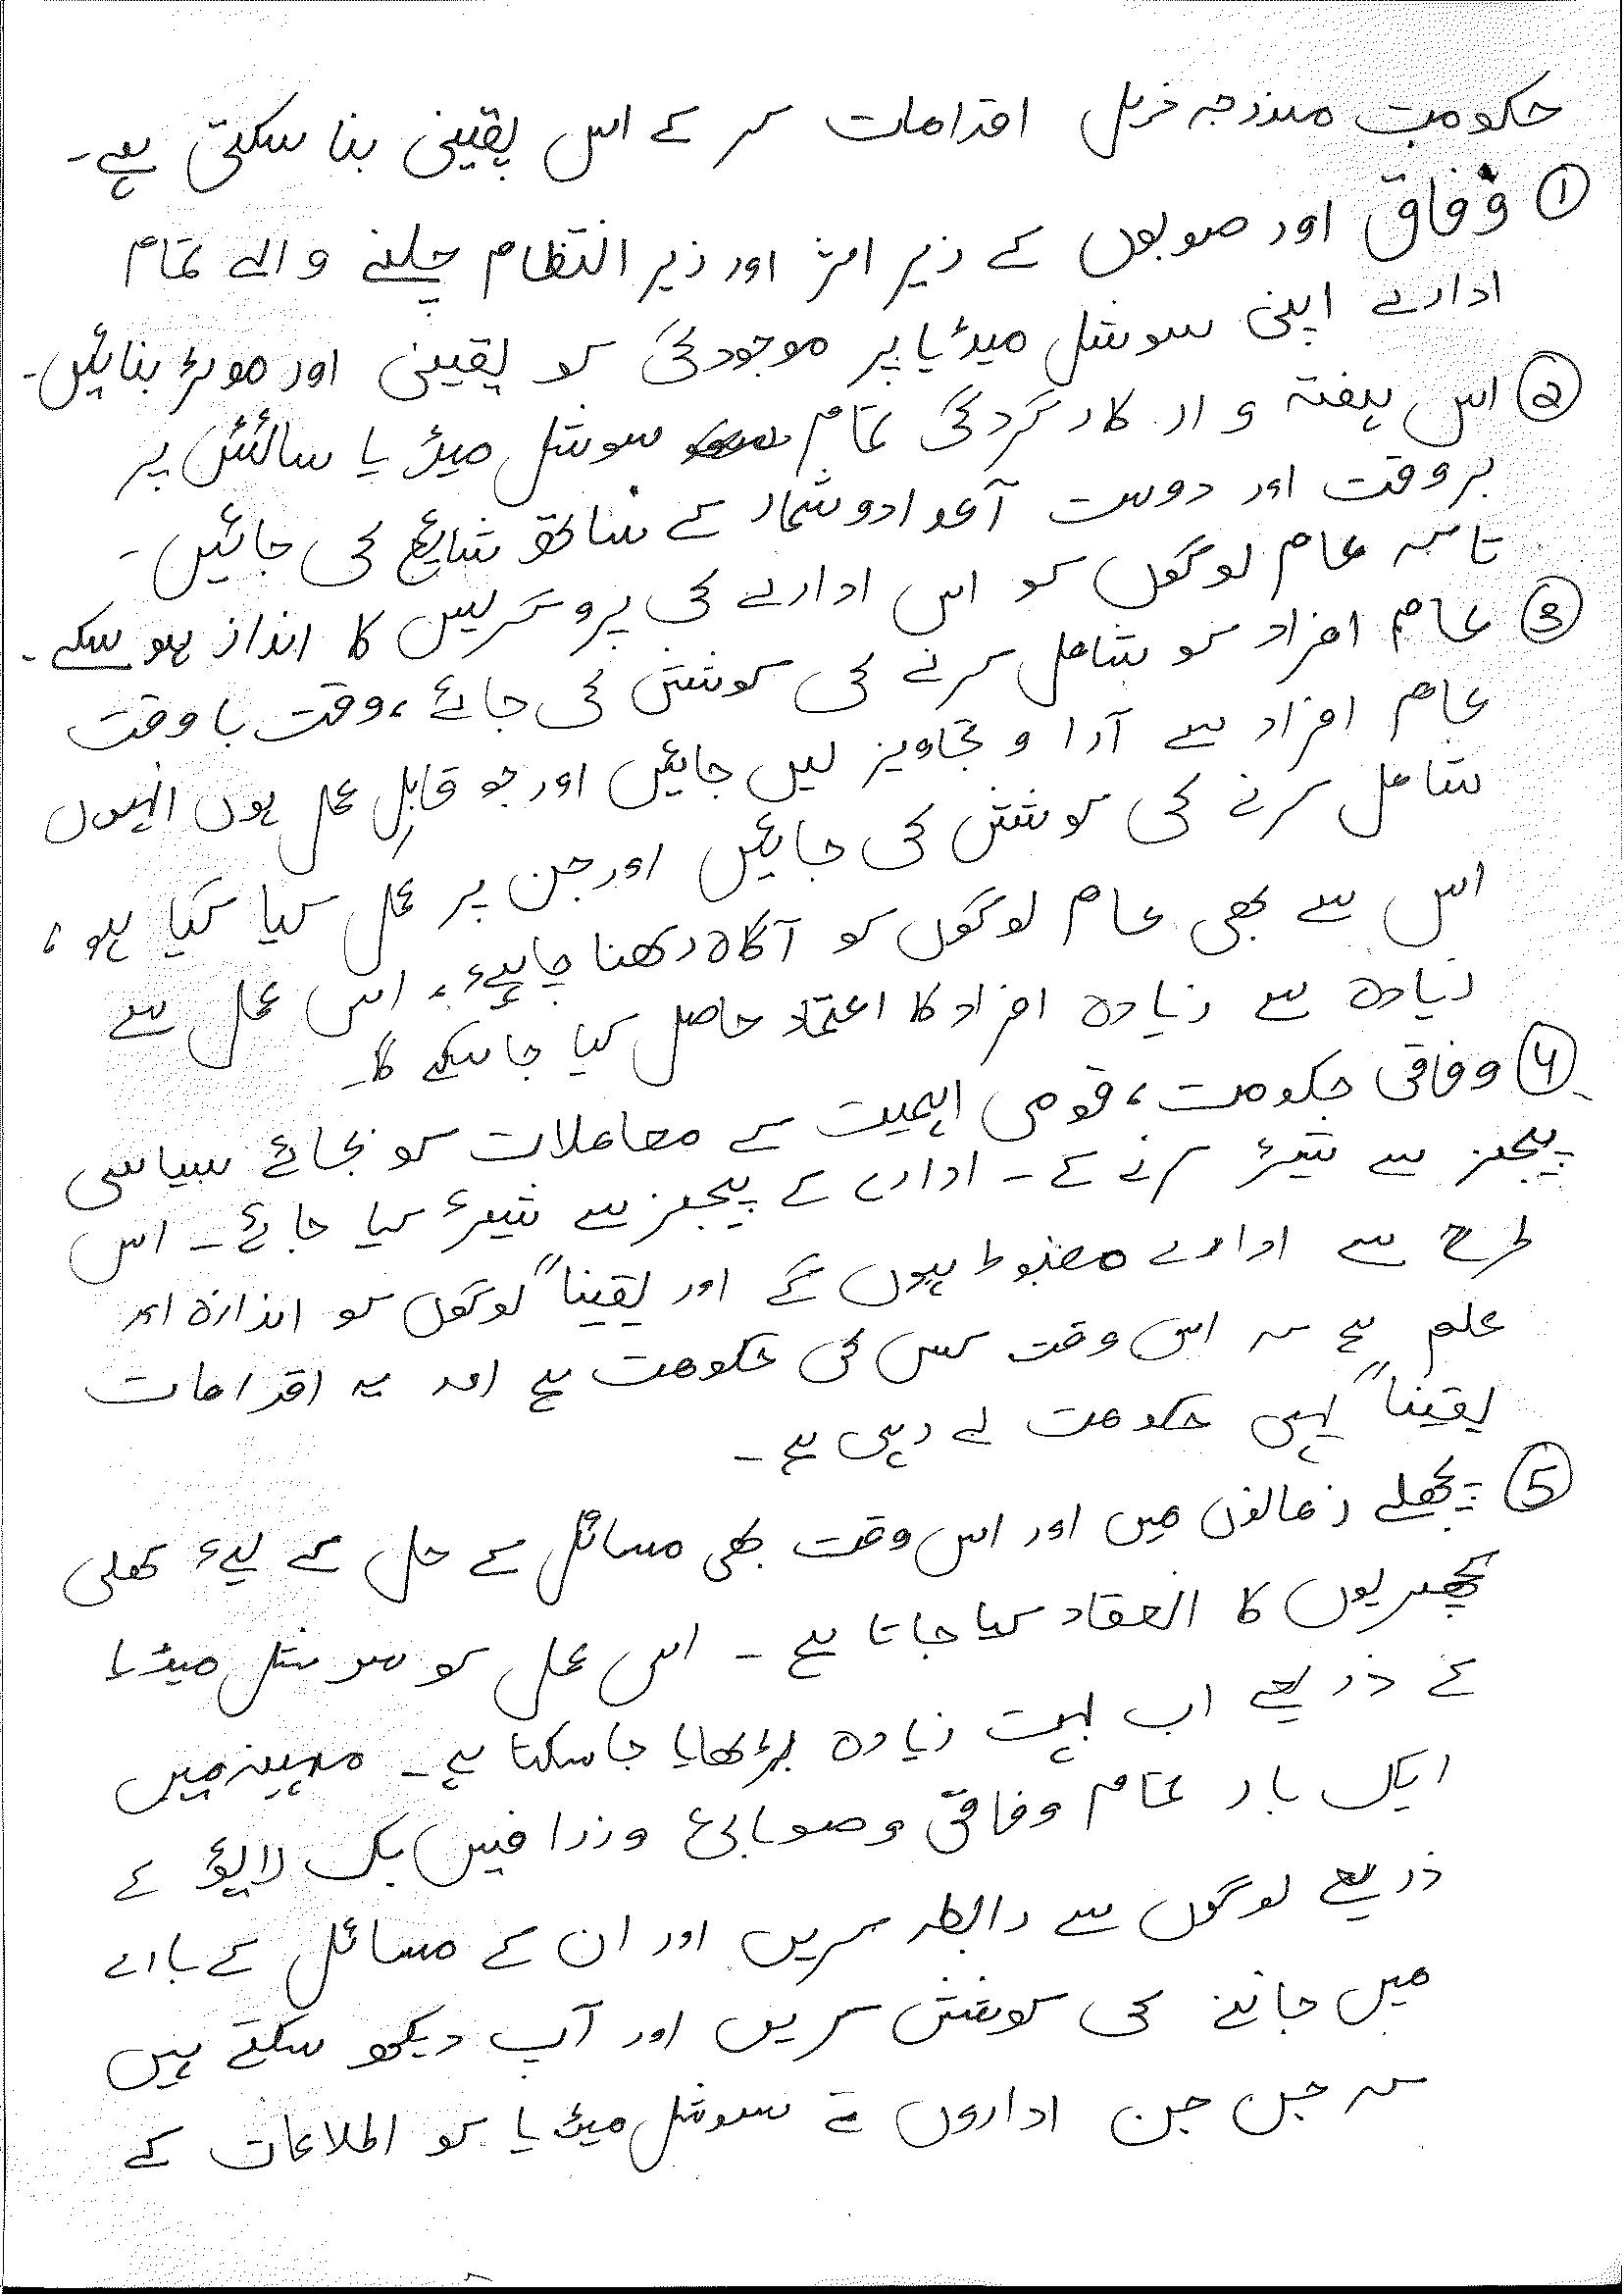 حکومت مندرجہ ذیل اقدامات کر کے اس یقینی بنا سکتی ہے۔
① وفاق اور صوبوں کے زیر اثر اور زیر انتظام چلنے والے تمام
ادارے اپنی سوشل میڈیا پر موجودگی کو یقینی اور موثر بنائیں۔
② اس ہفتہ وار کارکردگی تمام سوشل میڈیا سائٹس پر
بروقت اور درست اعدادوشمار کے ساتھ شایع کی جائیں۔
تاکہ عام لوگوں کو اس ادارے کی پروگریس کا انداز ہو سکے۔
③ عام افراد کو شامل کرنے کی کوشش کی جائے، وقت باوقت
عام افراد سے آرا و تجاویز لیں جائیں اور جو قابلِ عمل ہوں انہوں
شامل کرنے کی کوشش کی جائیں اور جن پر عمل کیا گیا ہو،
اس سے بھی عام لوگوں کو آگاہ رکھنا چاہیے، اس عمل سے
زیادہ سے زیادہ افراد کا اعتماد حاصل کیا جا سکے گا۔
④ وفاقی حکومت، قومی اہمیت کے معاملات کو بجائے سیاسی
پیجز سے شیئر کرنے کے۔ ادارے کے پیجز سے شیئر کیا جائے۔ اس
طرح سے ادارے مضبوط ہوں گے اور یقیناً لوگوں کو اندازہ اور
علم ہے کہ اس وقت کس کی حکومت ہے اور یہ اقدامات
یقیناً یہی حکومت لے رہی ہے۔
⑤ پچھلے زمانوں میں اور اس وقت بھی مسائل کے حل کے لیے کھلی
کچہریوں کا انعقاد کیا جاتا ہے۔ اس عمل کو سوشل میڈیا
کے ذریعے اب بہت زیادہ بڑھایا جا سکتا ہے۔ مہینہ میں
ایک بار تمام وفاقی و صوبائی وزرا فیس بک لائیو کے
ذریعے لوگوں سے رابطہ کریں اور ان کے مسائل کے بارے
میں جاننے کی کوشش کریں اور آپ دیکھو سکتے ہیں
کہ جن جن اداروں نے سوشل میڈیا کو اطلاعات کے